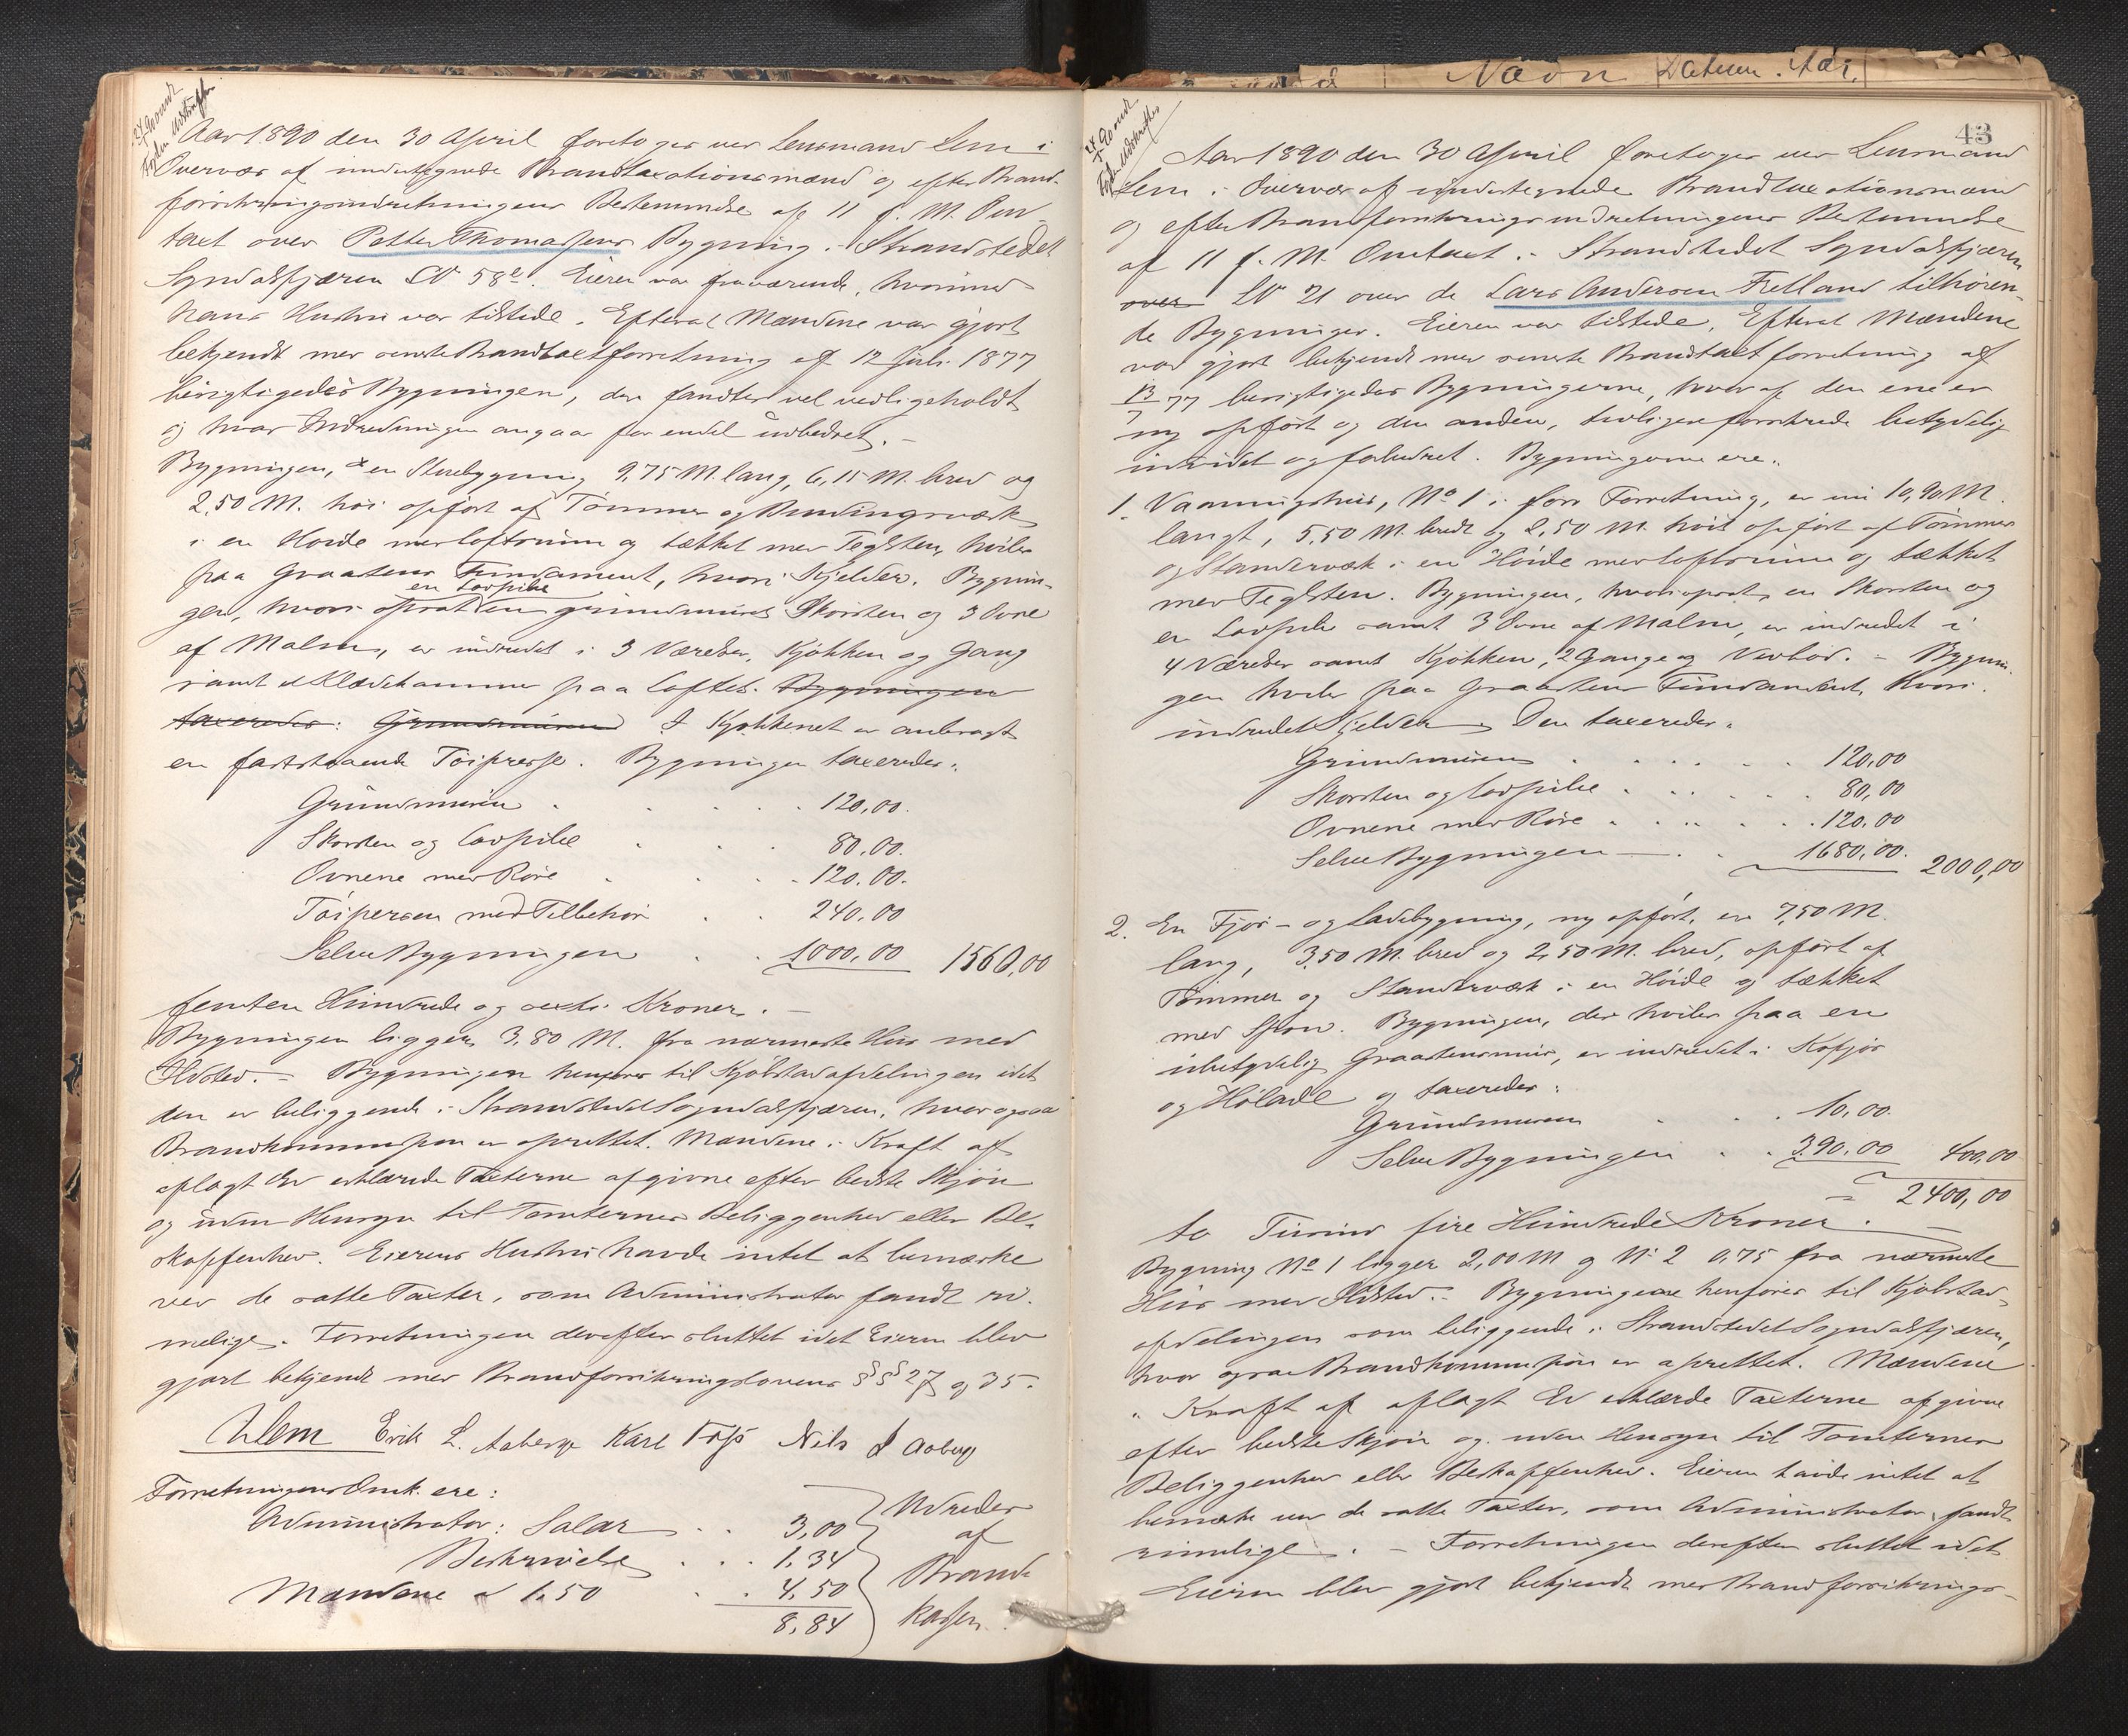 Aar 1890 den 30 April foretoges ved Lensmand Lem i
Overvær af undertegnede Brandtaxationsmænd og efter Brand-
forsikringsindretningens Bestemmelse af 11 f. M. Om-
taxt over Petter Thomassens Bygning i Strandstedet
Sogndalsfjæren LN 58e. Eieren var fraværende, hvorimod
hans Hustru var tilstede. Efterat Mændene var gjort
bekjendt med seneste Brandtaxtforretning af 12 Juli 1877
besigtigedes Bygningen, der fandtes vel vedligeholdt
og hvad Indredningen angaar for endel udbedret. –
Bygningen, er en Stuebygning 9,75 M. lang, 6,15 M. bred og
2,50 M. høi opført af Tømmer og Bindingsværk
i en Høide med Loftsrum og tækket med Teglsten, hviler
paa Graastens Fundament, hvori Kjelder. Bygnin-
en Lovpibe
gen, hvori opsat en grundmuret Skorsten og 3 Ovne
af Malm, er indredet i 3 Værelser, Kjøkken og Gang
samt et Klædekammer paa Loftet. Bygningen
taxeredes: Grundmuren I Kjøkkenet er anbragt
en faststaaende Tøipresse. Bygningen taxeredes:
Grundmuren . . . . 120,00.
Skorsten og Lovpibe . . . 80,00.
Ovnene med Røre . . . 120,00.
Tøipersen med Tilbehør . . 240,00
Selve Bygningen . . 1000,00 1560,00
femten Hundrede og sexti Kroner. –
Bygningen ligger 3,80 M. fra nærmeste Hus med
Ildsted. – Bygningen henføres til Kjøbstadafdelingen idet
den er beliggende i Strandstedet Sogndalsfjæren, hvor ogsaa
Brandkommission er oprettet. Mændene i Kraft af
aflagt Ed erklærede Taxterne afgivne efter bedste Skjøn
og uden Hensyn til Tomternes Beliggenhed eller Be-
skaffenhed. Eierens Hustru havde intet at bemærke
ved de satte Taxter, som Administrator fandt ri-
melige. Forretningen derefter sluttet idet Eieren blev
gjort bekjendt med Brandforsikringslovens §§ 27 og 35.
Lem Erik L. Aaberge Karl Foss Nils J Aaberge
Forretningens Omk. ere:
Administrator: Salær . . 3,00 Udredes
Beskrivelse . . . 1,34 af
Mændene a 1,50 . . 4,50 Brand-
8,84 kassen.
Navn Datum. Aar.
43
Aar 1890 den 30 April foretoges ved Lensmand
Lem i Overvær af undertegnede Brandtaxationsmænd
og efter Brandforsikringsindretningens Bestemmelse
af 11 f. M. Omtaxt i Strandstedet Sogndalsfjæren
over LN 21 over de Lars Andersen Fretland tilhøren-
de Bygninger. Eieren var tilstede. Efterat Mændene
var gjort bekjendt med seneste Brandtaxtforretning af
13/7 77 besigtigedes Bygningerne, hvoraf den ene er
ny opført og den anden, tidligere forsikrede betydelig
udvidet og forbedret. Bygningerne ere:
1. Vaaningshus, No 1 i forr Forretning, er nu 10,90 M.
langt, 5,50 M. bredt og 2,50 M. høit opført af Tømmer
og Standerværk i en Høide med Loftsrum og tækket
med Teglsten. Bygningen, hvori opsat en Skorsten og
en Lovpibe samt 3 Ovne af Malm, er indredet i
4 Værelser samt Kjøkken, 2 Gange og Vedbod. – Bygnin-
gen hviler paa Graastens Fundament, hvori
indredet Kjelder. Den taxeredes:
Grundmuren . . . . . . 120,00
Skorsten og Lovpibe . . . . . 80,00
Ovnene med Røre . . . . . 120,00
Selve Bygningen . . 1680,00. 2000,00
2. En Fjøs- og Ladebygning, ny opført, er 7,50 M.
lang, 3,50 M. bred og 2,50 M. bred, opført af
Tømmer og Standerværk i en Høide og tækket
med Spon. Bygningen, der hviler paa en
ubetydelig Graastensmur, er indredet i Kofjøs
og Hølade og taxeredes:
Grundmuren . . . 10,00.
Selve Bygningen . . 390,00 400,00
= 2400,00
to Tusind fire Hundrede Kroner.
Bygning No 1 ligger 2,00 M og No 2 0,75 fra nærmeste
Hus med Ildsted. – Bygningene henføres til Kjøbstad-
afdelingen som beliggende i Strandstedet Sogndalsfjæren,
hvor ogsaa Brandkommission er oprettet. Mændene
i Kraft af aflagt Ed erklærde Taxterne afgivne
efter bedste Skjøn og uden Hensyn til Tomternes
Beliggenhed eller Beskaffenhed. Eieren havde intet at
bemærke ved de satte Taxter, som Administrator fandt
rimelige. – Forretningen derefter sluttet idet
Eieren blev gjort bekjendt med Brandforsikrings-